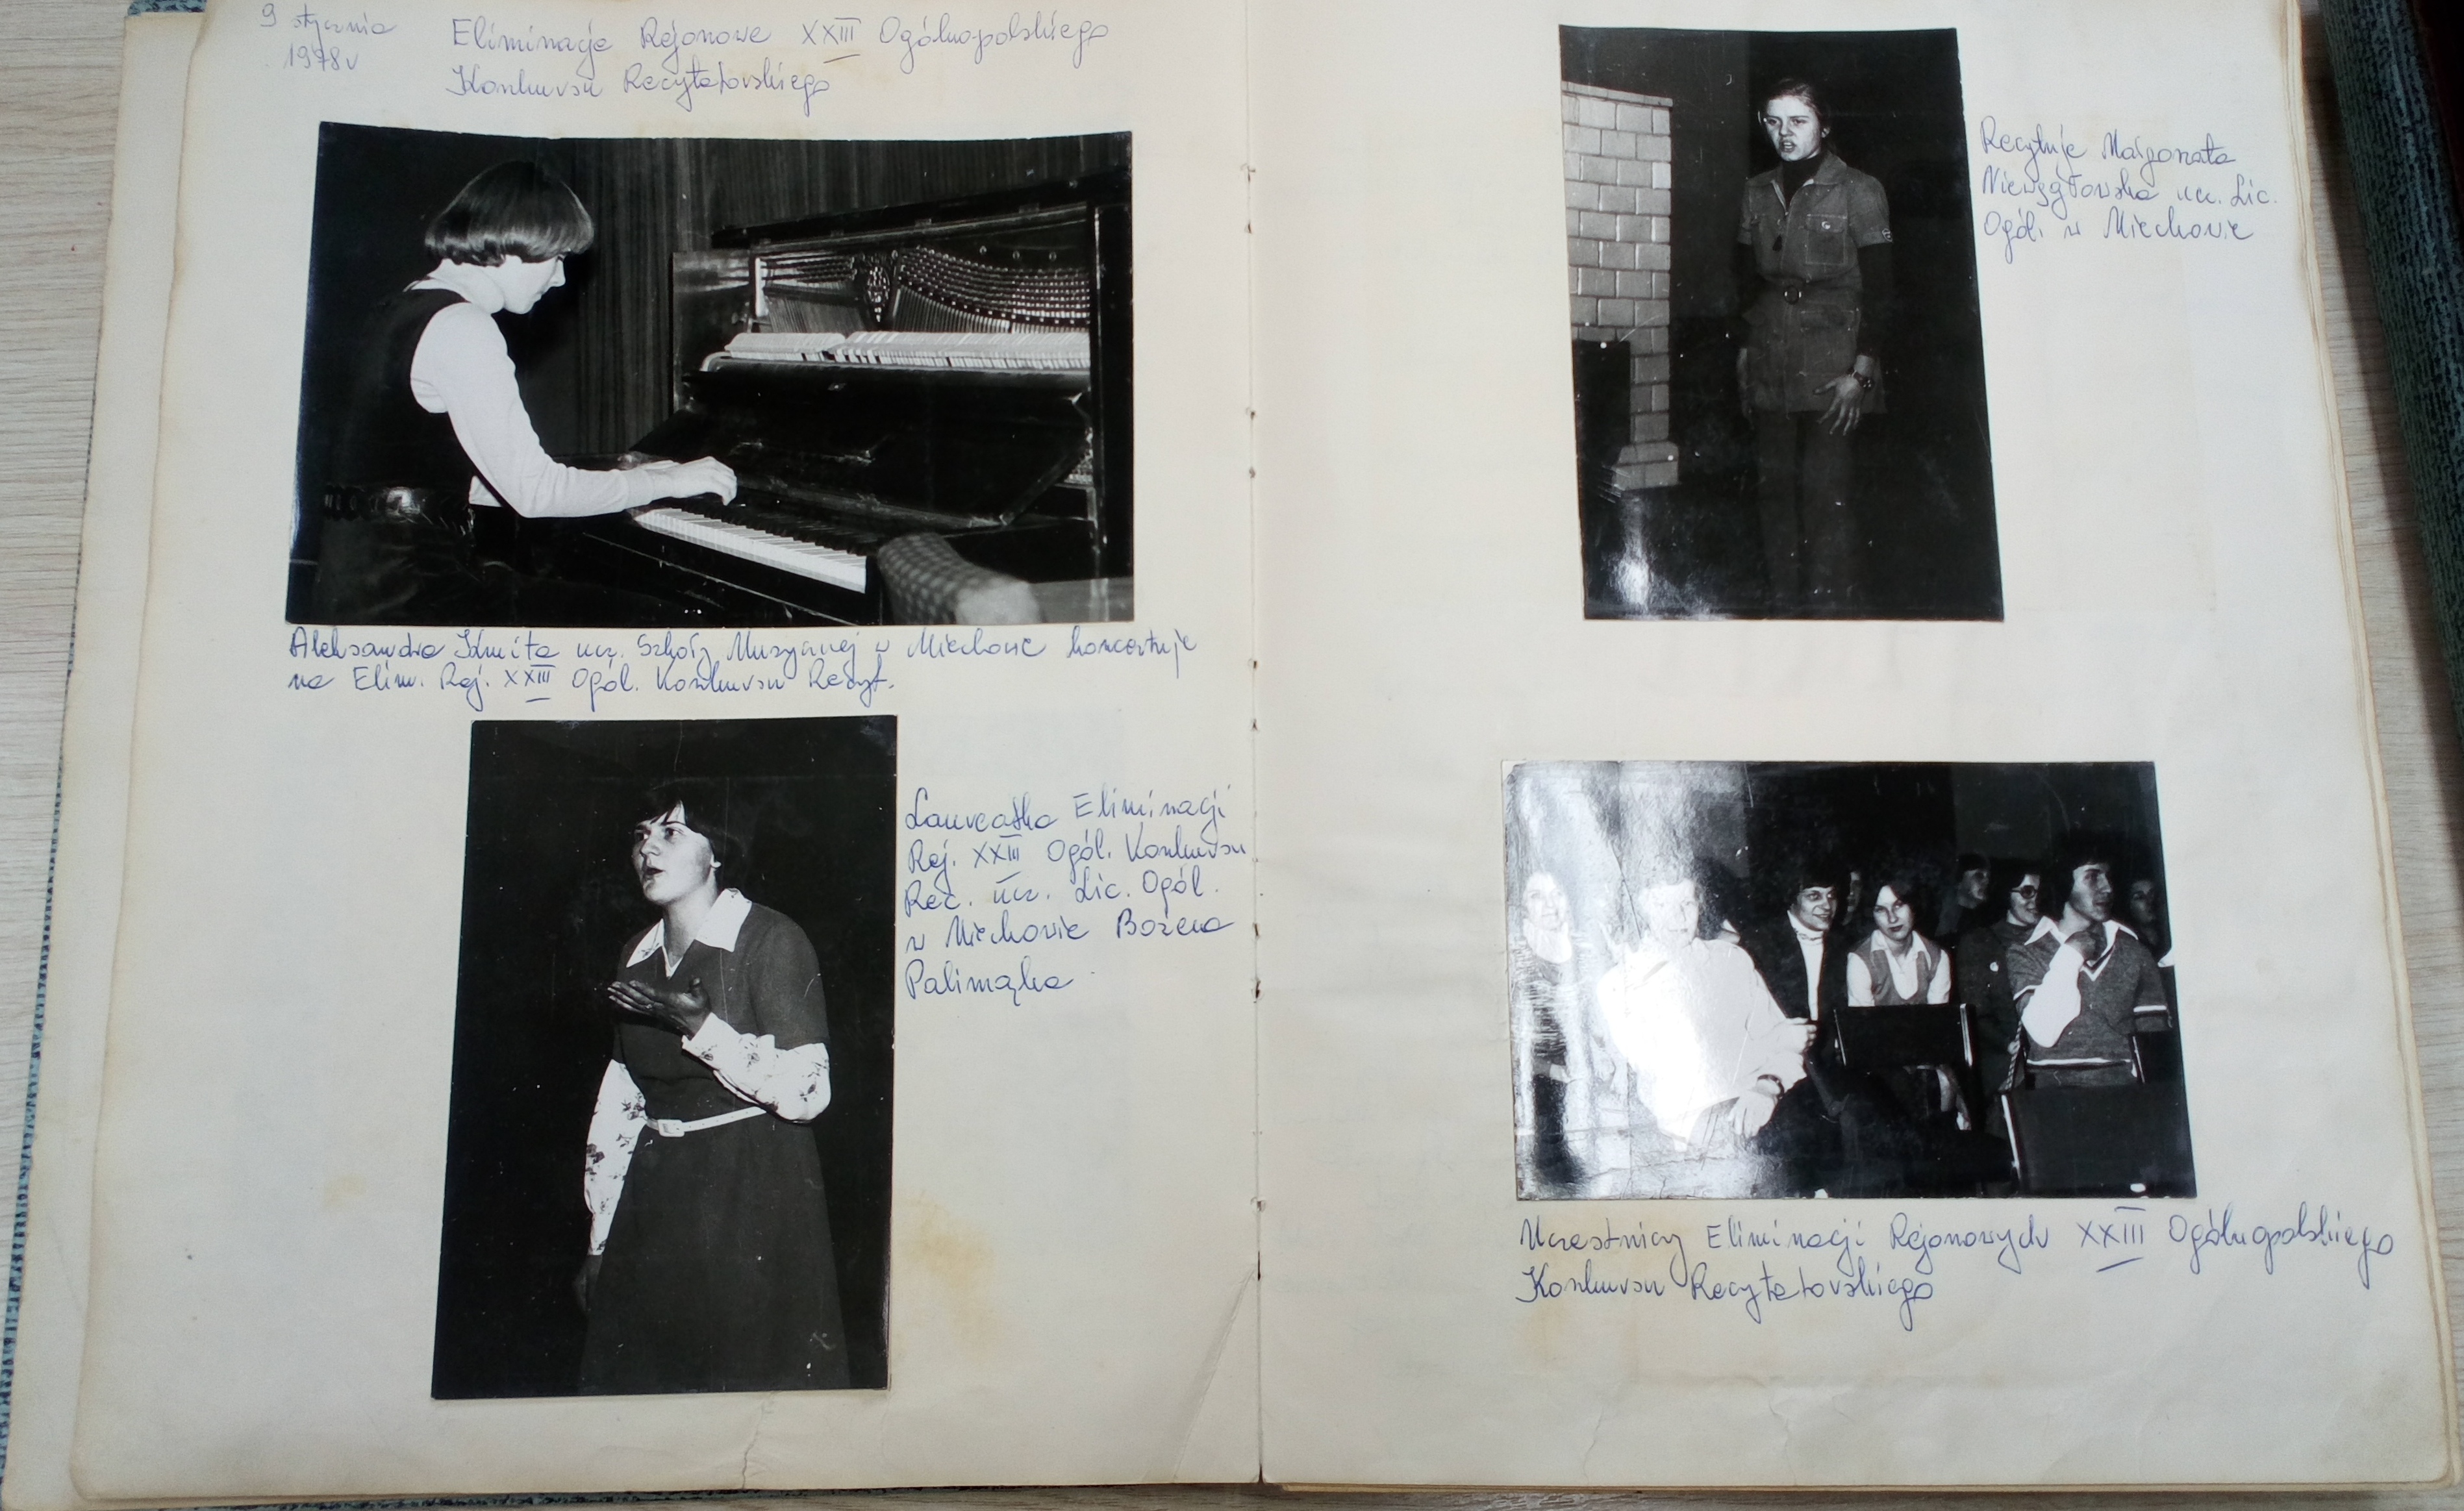 9 stycznia
1978r
Eliminacje Rejonowe XXIII Ogólnopolskiego
Konkursu Recytatorskiego
Aleksandra Kmita ucz. Szkoły Muzycznej w Miechowie koncertuje
na Elim. Rej. XXIII Ogól. Konkursu Recyt.
Laureatka Eliminacji
Rej. XXIII Ogól. Konkursu
Rec. ucz. Lic. Ogól.
w Miechowie Bożena
Palimąka
Recytuje Małgorzata
Niewygłowska ucz. Lic.
Ogól. w Miechowie
Uczestnicy Eliminacji Rejonowych XXIII Ogólnopolskiego
Konkursu Recytatorskiego